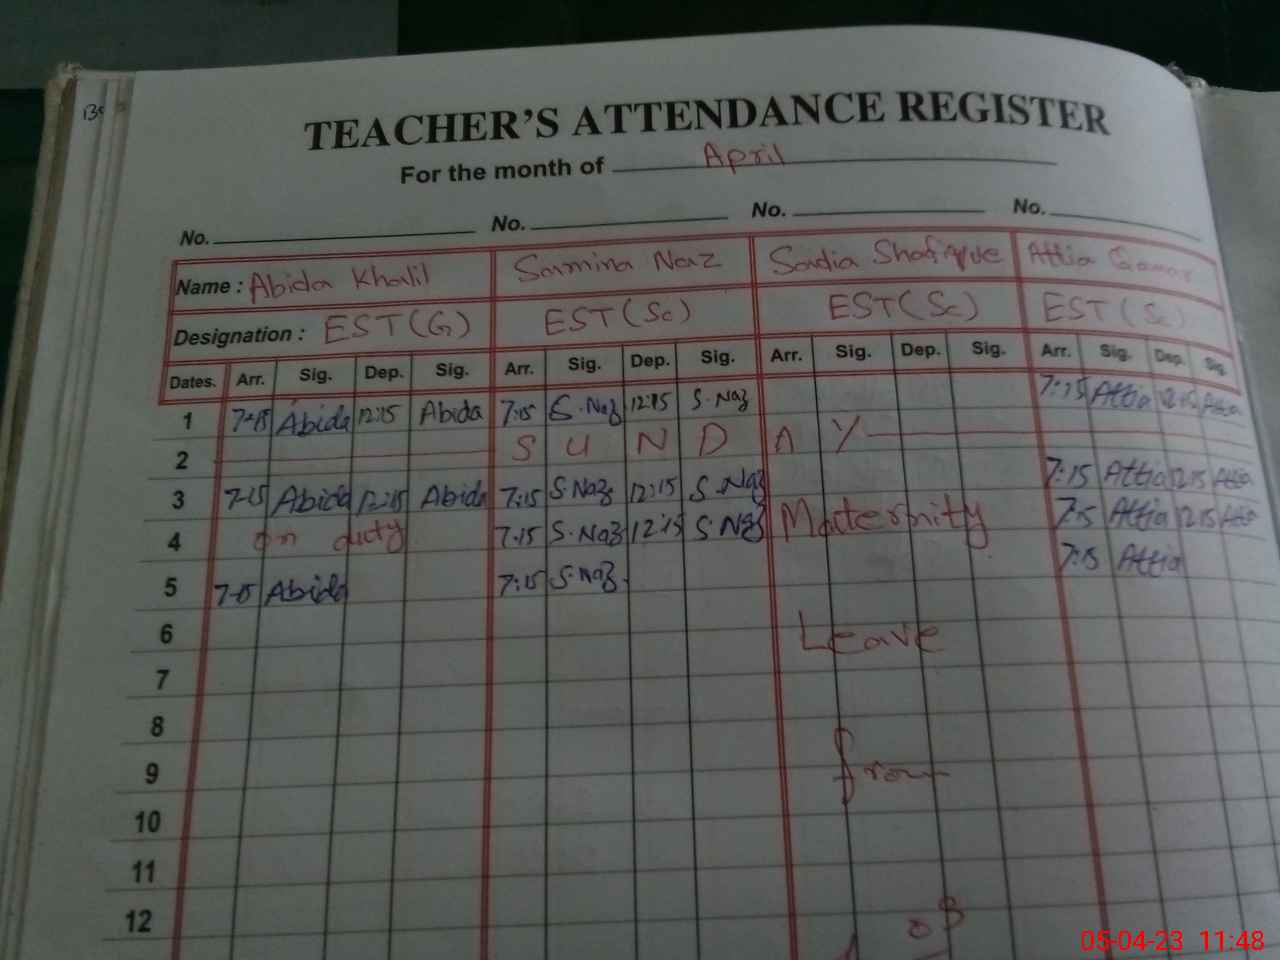 TEACHER'S ATTENDANCE REGISTER
For the month of April
No. No. No. No.
Name : Abida Khalil Samina Naz Sadia Shafique Attia Qamar
Designation : EST (G) EST (Sc) EST (Sc) EST (Sc)
Dates. Arr. Sig. Dep. Sig. Arr. Sig. Dep. Sig. Arr. Sig. Dep. Sig. Arr. Sig. Dep. Sig.
1 7:15 Abida 12:15 Abida 7:15 S.Naz 12:15 S.Naz 7:15 Attia 12:15 Attia
2 S U N D A Y
3 7:15 Abida 12:15 Abida 7:15 S.Naz 12:15 S.Naz 7:15 Attia 12:15 Attia
4 on duty 7:15 S.Naz 12:15 S.Naz Maternity 7:15 Attia 12:15 Attia
5 7:15 Abida 7:15 S.Naz 7:15 Attia
6 Leave
7
8
9 from
10
11
12
05-04-23 11:48